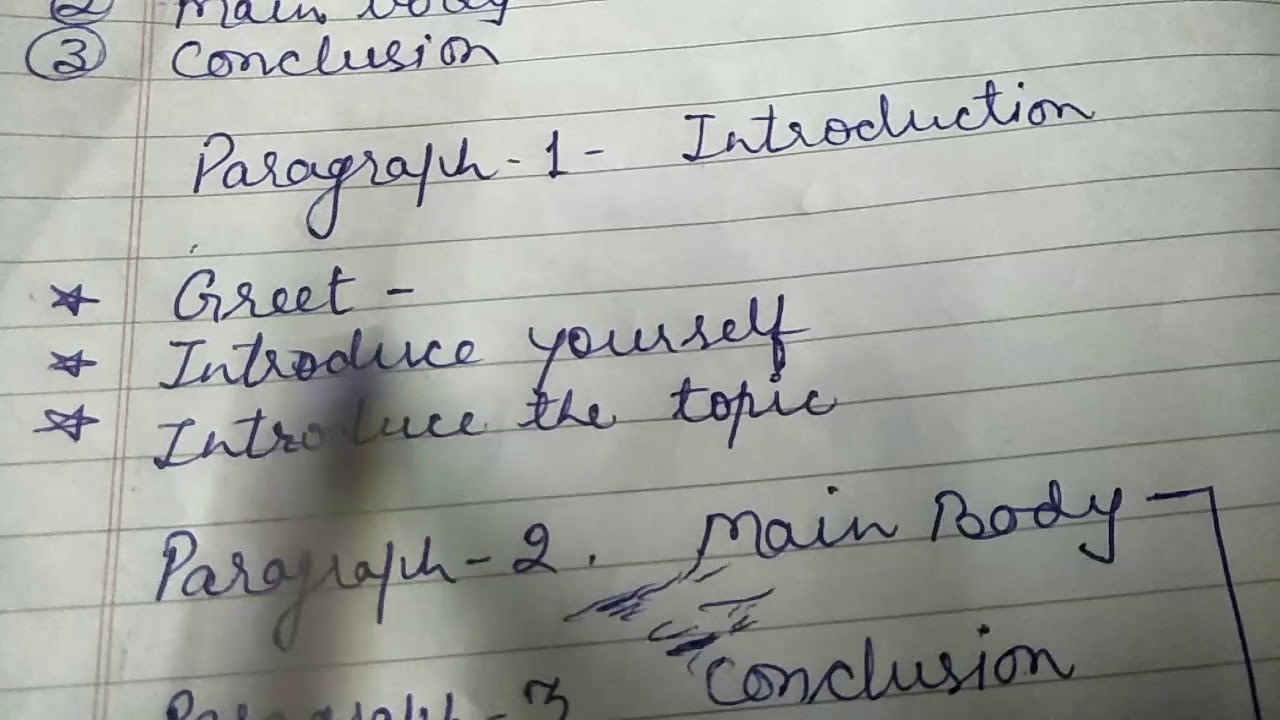 2 Main body
3 Conclusion
Paragraph-1- Introduction
* Greet -
* Introduce yourself
* Introduce the topic
Paragraph-2. Main Body
Paragraph-3 Conclusion